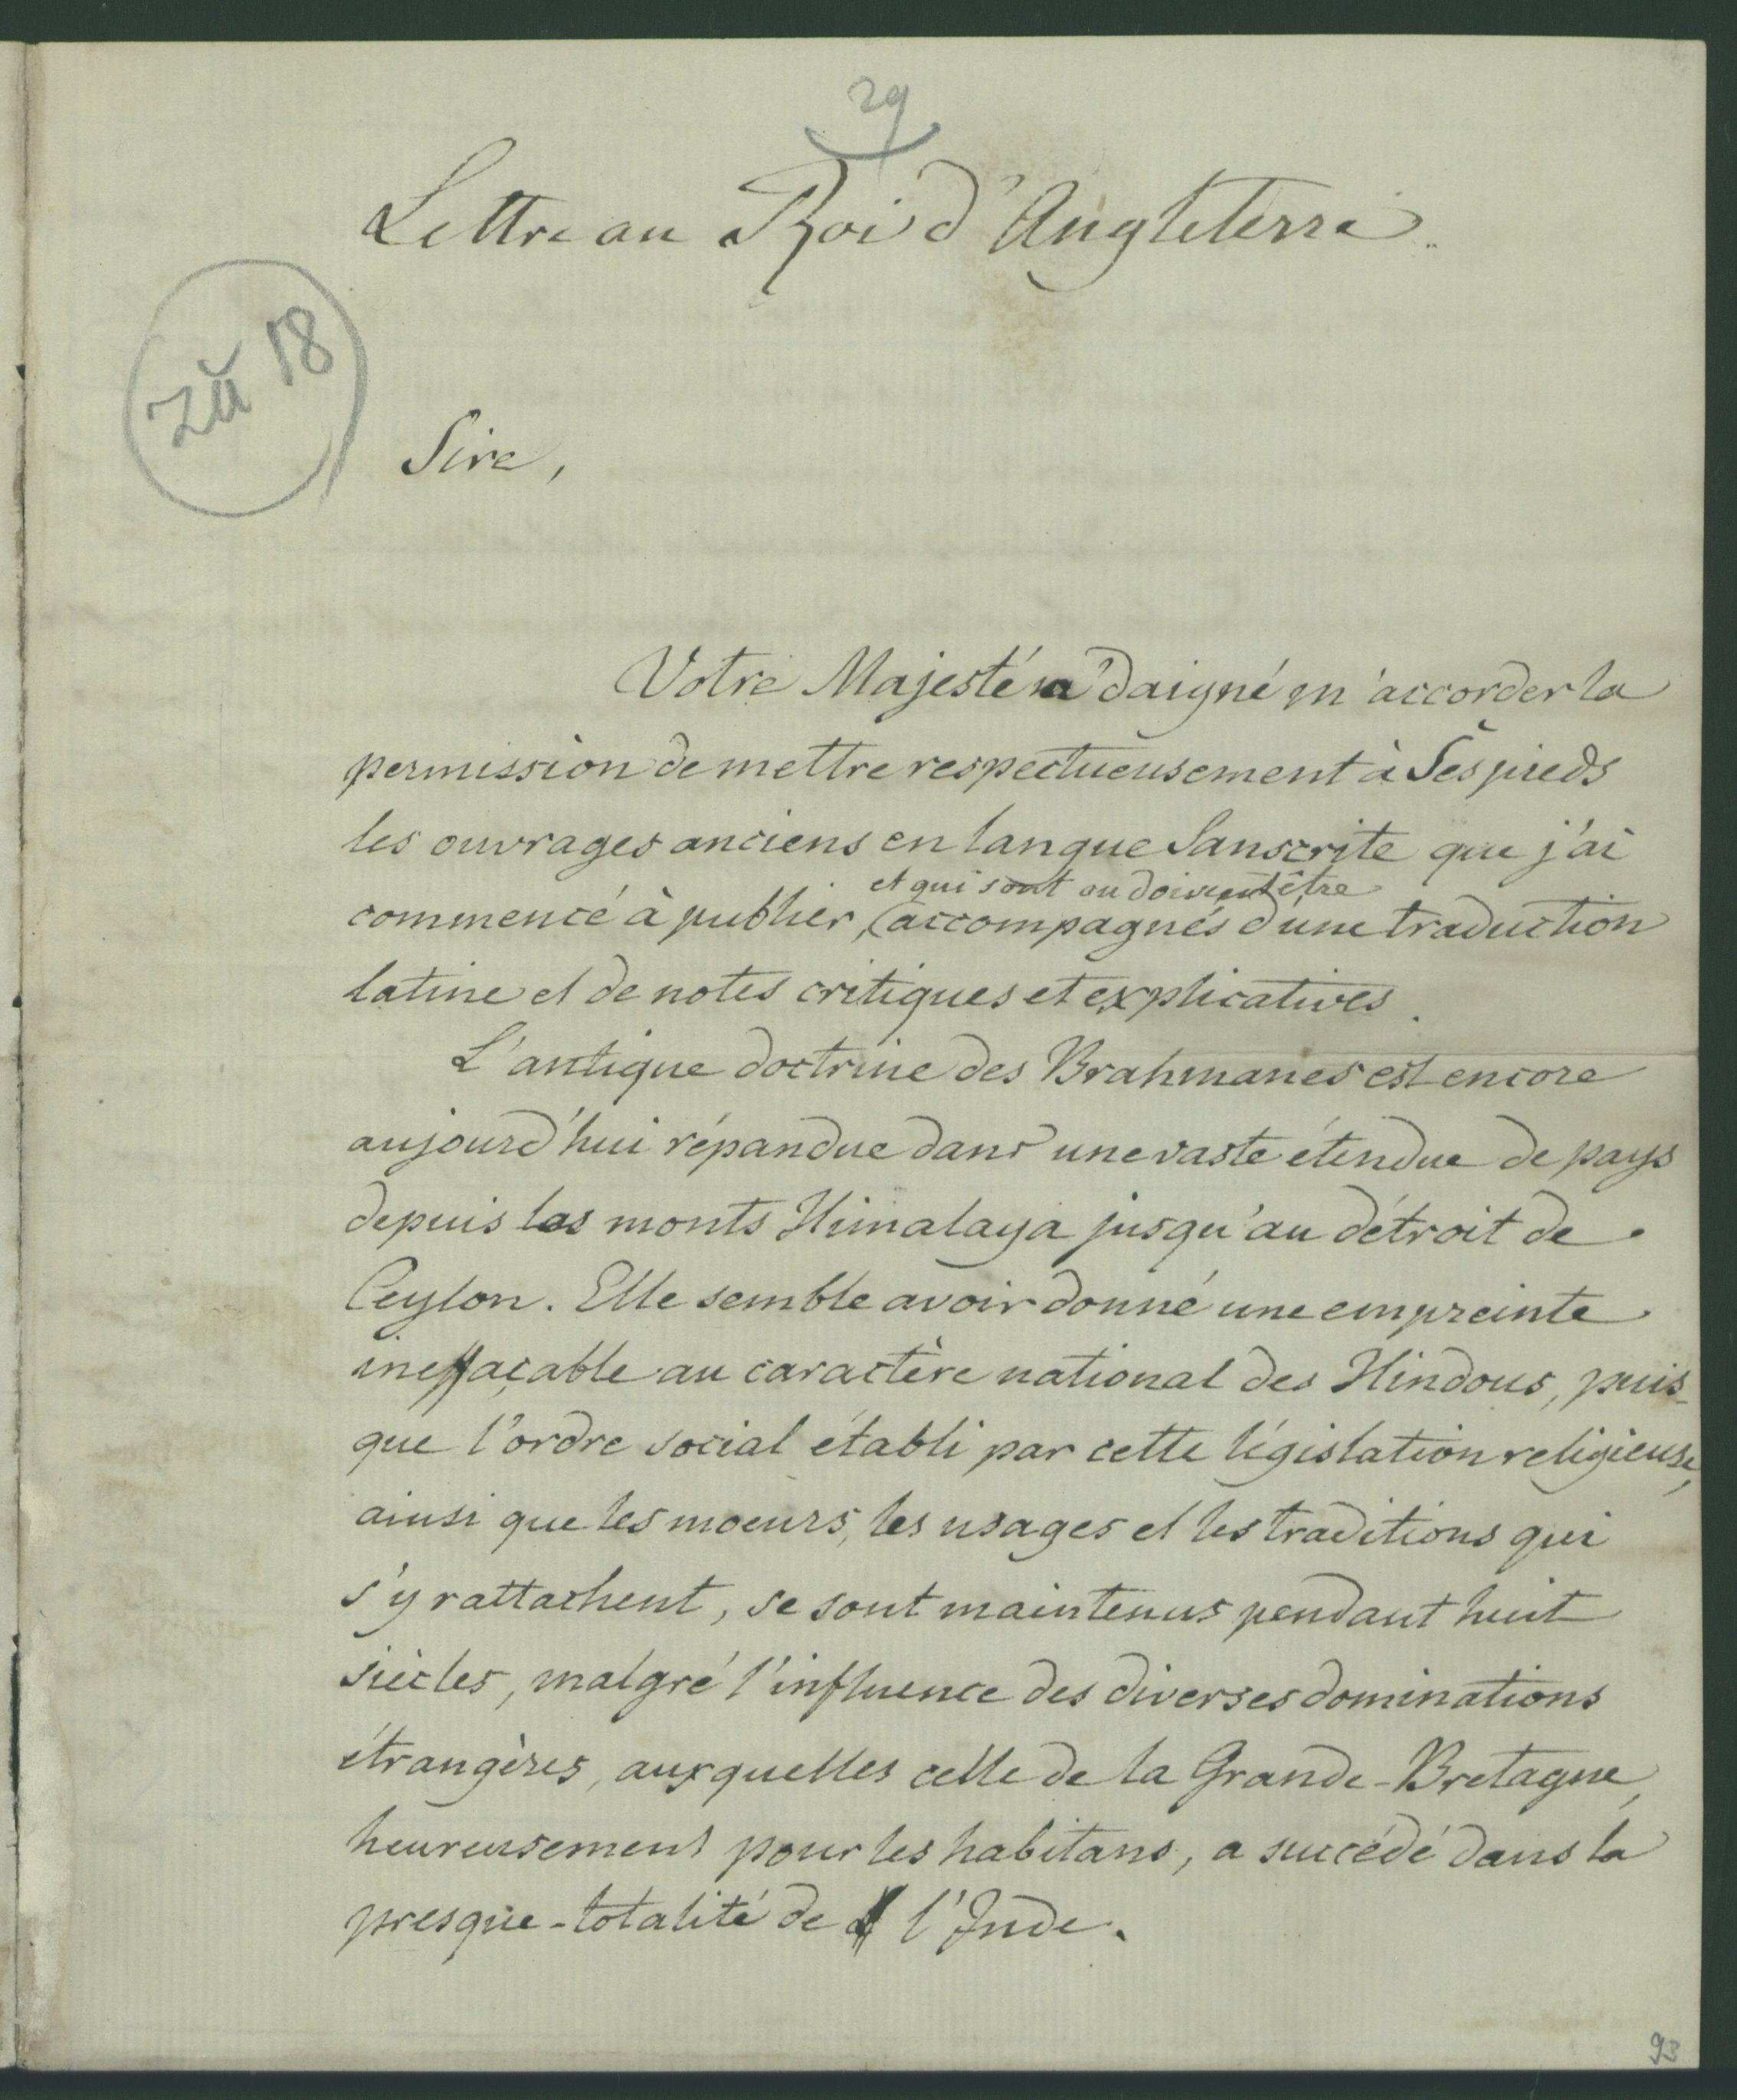 29
Lettre au Roi d'Angleterre.
zu 18
Sire,
Votre Majesté a daigné m'accorder la
permission de mettre respectueusement à Ses pieds
les ouvrages anciens en langue Sanscrite que j'ai
et qui sont ou doivent être
commencé à publier, (accompagnés d'une traduction
latine et de notes critiques et explicatives.
L'antique doctrine des Brahmanes est encore
aujourd'hui répandue dans une vaste étendue de pays
depuis les monts Himalaya jusqu'au détroit de
Ceylon. Elle semble avoir donné une empreinte
ineffaçable au caractère national des Hindous, puis-
que l'ordre social établi par cette législation religieuse,
ainsi que les moeurs, les usages et les traditions qui
s'y rattachent, se sont maintenus pendant huit
siècles, malgré l'influence des diverses dominations
étrangères, auxquelles celle de la Grande-Bretagne,
heureusement pour les habitans, a succédé dans la
presque-totalité de l'Inde.
93